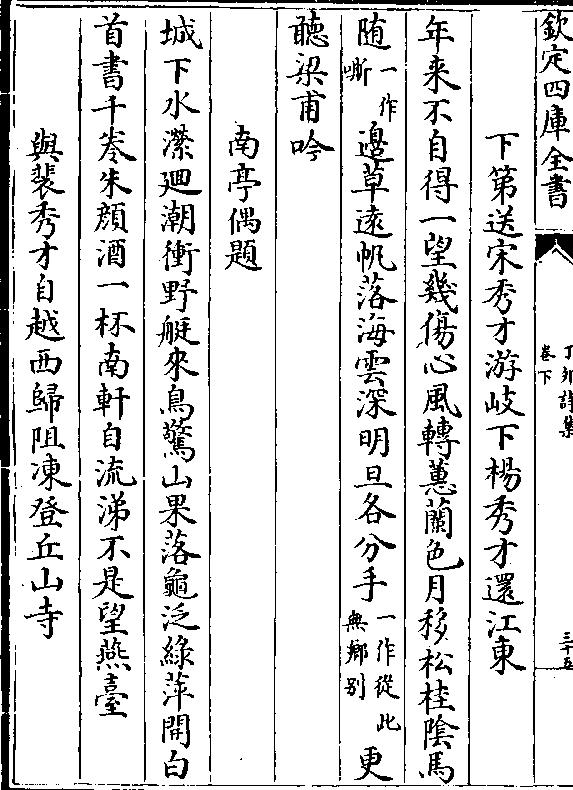 欽定四庫全書
丁卯詩集
卷下
三十五
下第送宋秀才游岐下楊秀才還江東
年来不自得一望幾傷心風轉蕙蘭色月移松桂陰馬
随一作嘶邉草逺帆落海雲深明旦各分手一作從此無鄉别更
聽梁甫吟
南亭偶題
城下水瀠廻潮衝野艇來鳥驚山果落龜泛綠萍開白
首書千卷朱顔酒一杯南軒自流涕不是望燕臺
與裴秀才自越西歸阻凍登丘山寺